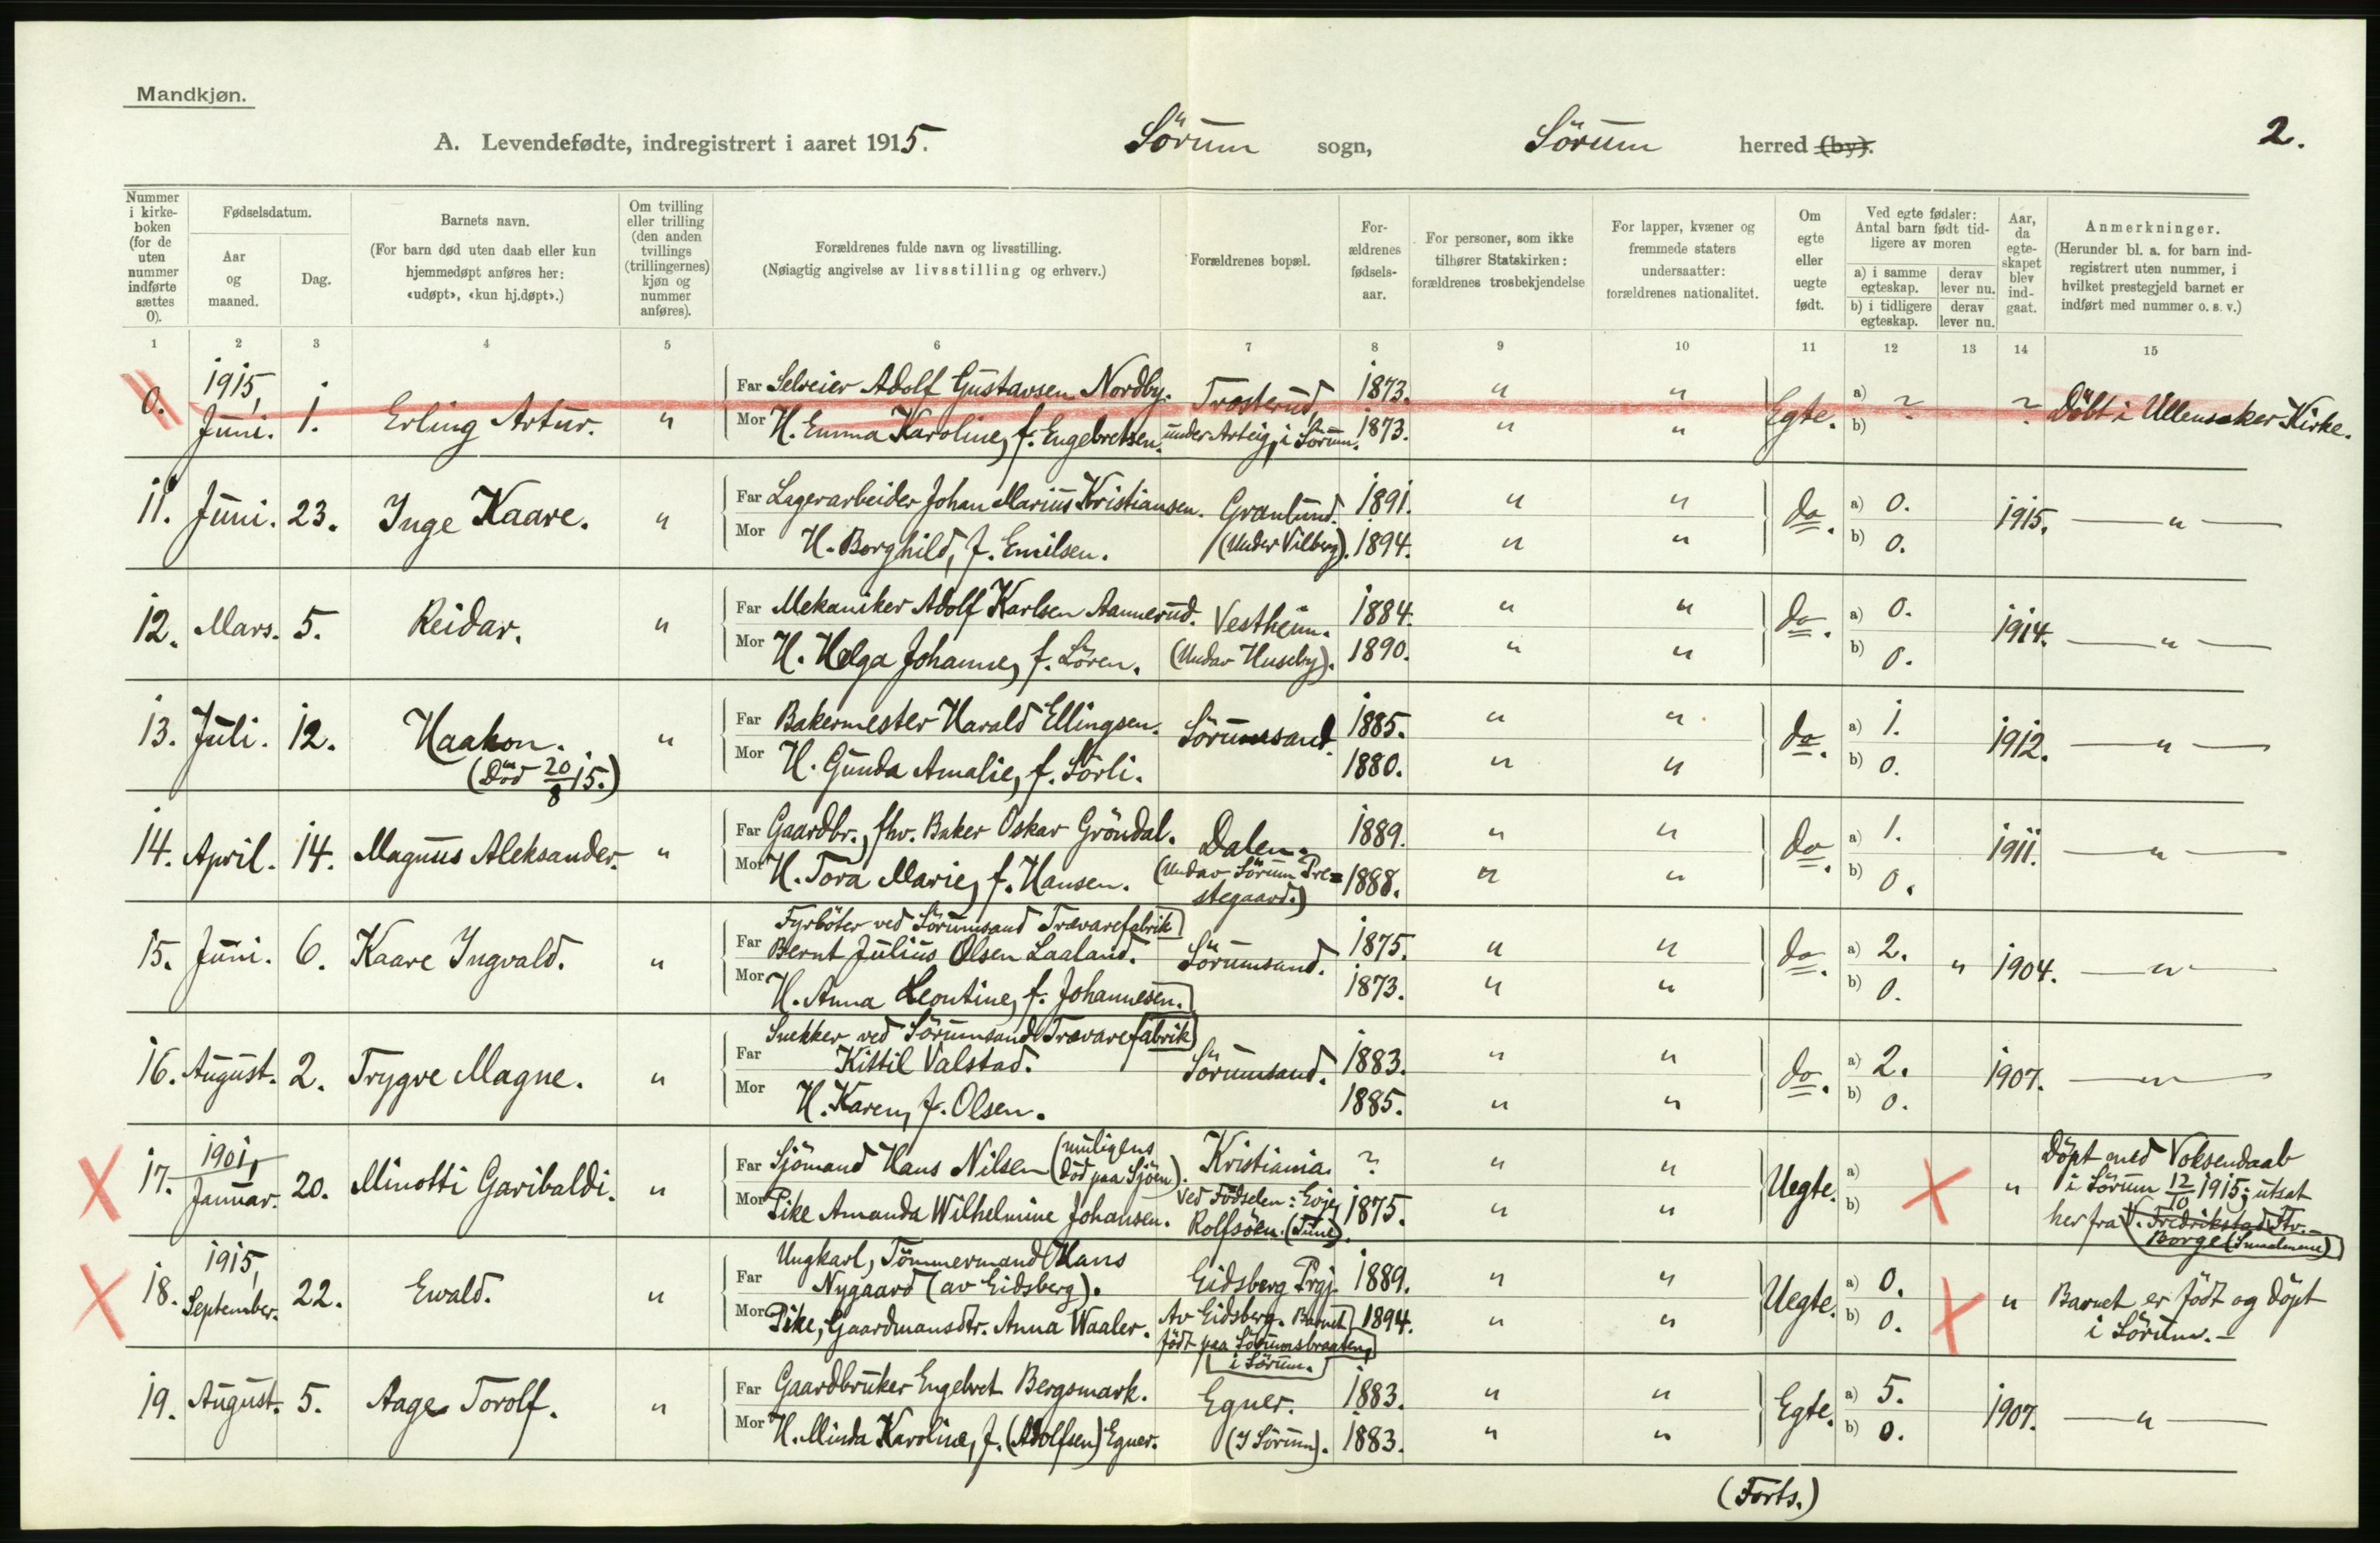 Mandkjøn.
2.
A. Levendefødte, indregistrert i aaret 1915. Sörum sogn, Sörum herred (by).
Nummer i kirke-boken (for de uten nummer indførte sættes 0).
Fødselsdatum.
Aar og maaned.
Dag.
Barnets navn.
(For barn død uten daab eller kun hjemmedøpt anføres her: «udøpt», «kun hj.døpt».)
Om tvilling eller trilling (den anden tvillings (trillingernes) kjøn og nummer anføres).
Forældrenes fulde navn og livsstilling.
(Nøiagtig angivelse av livsstilling og erhverv.)
Forældrenes bopæl.
For-ældrenes fødsels-aar.
For personer, som ikke tilhører Statskirken: forældrenes trosbekjendelse
For lapper, kvæner og fremmede staters undersaatter: forældrenes nationalitet.
Om egte eller uegte født.
Ved egte fødsler: Antal barn født tid-ligere av moren
a) i samme egteskap.
derav lever nu.
b) i tidligere egteskap.
derav lever nu.
Aar, da egte-skapet blev ind-gaat.
Anmerkninger.
(Herunder bl. a. for barn ind-registrert uten nummer, i hvilket prestegjeld barnet er indført med nummer o. s. v.)
1 2 3 4 5 6 7 8 9 10 11 12 13 14 15
0. 1915, Juni. 1. Erling Artur. "
Far Selveier Adolf Gustavsen Nordby. Trosterud, 1873. " "
Mor H. Emma Karoline, f. Engebretsen. under Arteig, i Sörum. 1873. " "
Egte. a) ? b) ? Döbt i Ullensaker Kirke.
11. Juni. 23. Inge Kaare. "
Far Lagerarbeider Johan Marius Kristiansen. Granlund. 1891. " "
Mor H. Borghild, f. Emilsen. (Under Vilberg). 1894. " "
do. a) 0. b) 0. 1915. — " —
12. Mars. 5. Reidar. "
Far Mekaniker Adolf Karlsen Aamerud. Vestheim. 1884. " "
Mor H. Helga Johanne, f. Lören. (Under Huseby). 1890. " "
do. a) 0. b) 0. 1914. — " —
13. Juli. 12. Haakon. (Död 20/8 15.) "
Far Bakermester Harald Ellingsen. Sörumsand. 1885. " "
Mor H. Gunda Amalie, f. Sörli. 1880. " "
do. a) 1. b) 0. 1912. — " —
14. April. 14. Magnus Aleksander. "
Far Gaardbr., fhv. Baker Oskar Gröndal. Dalen. 1889. " "
Mor H. Tora Marie, f. Hansen. (Under Sörum Pre=stegaard.) 1888. " "
do. a) 1. b) 0. 1911. — " —
15. Juni. 6. Kaare Ingvald. "
Fyrböter ved Sörumsand Trævarefabrik
Far Bernt Julius Olsen Laaland. Sörumsand. 1875. " "
Mor H. Anna Leontine, f. Johannesen. 1873. " "
do. a) 2. b) 0. " 1904. — " —
16. August. 2. Trygve Magne. "
Snekker ved Sörumsand Trævarefabrik
Far Kittil Valstad. Sörumsand. 1883. " "
Mor H. Karen, f. Olsen. 1885. " "
do. a) 2. b) 0. 1907. — " —
17. 1901, Januar. 20. Minotti Garibaldi. "
Far Sjömand Hans Nilsen (muligens död paa Sjöen). Kristiania. ? " "
Mor Pike Amanda Wilhelmine Johansen. Ved Födselen: Evje, Rolfsöen. (Tune). 1875. " "
Uegte. a) b) " Döpt med Voksendaab
i Sörum 12/10 1915; utsat
her fra V. Fredrikstad Ftv.
Borge (Smaalenene)
18. 1915, September. 22. Ewald. "
Ungkarl, Tömmermand Hans
Far Nygaard (av Eidsberg). Eidsberg Prgj. 1889. " "
Mor Pike, Gaardmansdtr. Anna Waaler. Av Eidsberg. Barnet födt paa Sörumsbraaten, i Sörum. 1894. " "
Uegte. a) 0. b) 0. " Barnet er födt og döpt
i Sörum. –
19. August. 5. Aage Torolf. "
Far Gaardbruker Engebret Bergsmark. Egner. 1883. " "
Mor H. Minda Karoline, f. (Adolfsen) Egner. (I Sörum). 1883. " "
Egte. a) 5. b) 0. 1907. — " —
(Forts.)